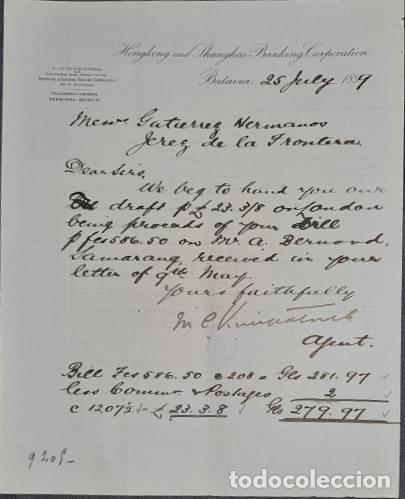 Hongkong and Shanghai Banking Corporation.
Batavia 25 July 1889
TELEGRAPHIC ADDRESS
Gutierrez Hermanos
Jerez de la Frontera.
Dear Sirs,
We beg to hand you our
draft p £ 23.3/8 on London
being proceeds of your Bill
p fcs 586.50 on Mr A. Bernond,
Samarang, received in your
letter of 9th May.
Yours faithfully
Agent.
Bill Fcs 586.50 c 208 = Gls 281.97
less Commn & Postages 2
c 1207½ £ 23.3.8 Gls 279.97
9205-
todocoleccion.net